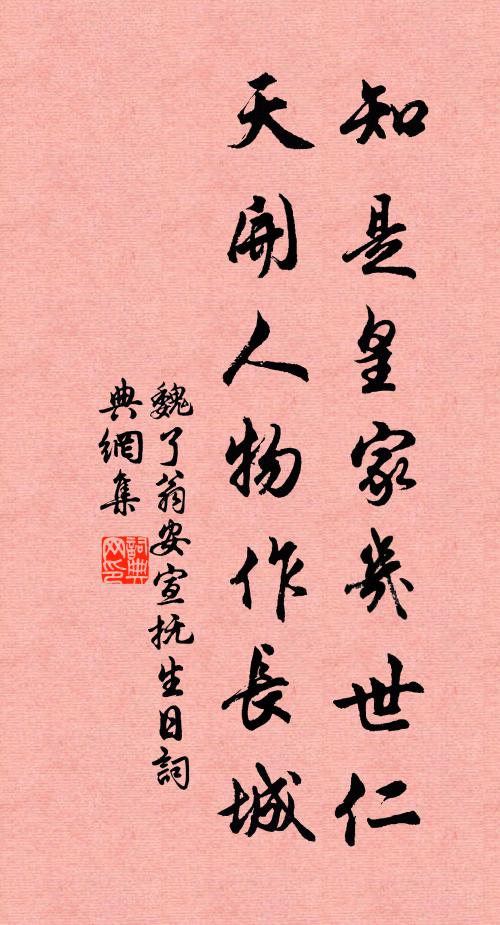 知是皇家幾世仁
天開人物作長城
魏了翁安宣抚生日詞
典網集
詞典
网印